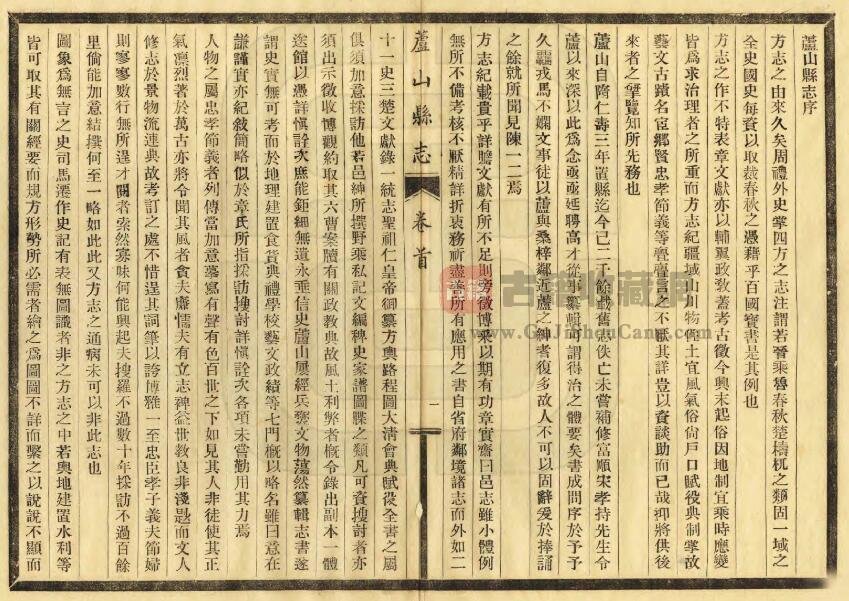 蘆山縣志序
方志之由來久矣周禮外史掌四方之志注謂若晉乘魯春秋楚檮杌之類固一域之
全史國史每資以取裁春秋之憑藉乎百國寶書是其例也
方志之作不特表章文獻亦以輔翼政敎蓋考古徵今興末起俗因地制宜乘時應變
皆爲求治理者之所重而方志紀疆域山川物產土宜風氣俗尙戶口賦役典制掌故
藝文古蹟名宦鄕賢忠孝節義等亹亹言之不厭其詳豈以資談助而已哉抑將供後
來者之肇覽知所先務也
蘆山自隋仁壽三年置縣迄今已二千餘載舊志佚亡未嘗補修富順宋孝持先生令
蘆以來深以此爲念亟亟延聘高才從事纂輯可謂得治之體要矣書成問序於予予
久羈戎馬不嫻文事徒以蘆與桑梓鄰近蘆之紳者復多故人不可以固辭爰於捧誦
之餘就所聞見陳一二焉
方志紀載貴乎詳贍文獻有所不足則旁徵博采以期有功章實齋曰邑志雖小體例
無所不備考核不厭精詳折衷務祈盡善所有應用之書自省府鄰境諸志而外如二
蘆山縣志
卷首
一
十一史三楚文獻錄一統志聖祖仁皇帝御纂方輿路程圖大淸會典賦役全書之屬
俱須加意採訪他若邑紳所撰野乘私記文編稗史家譜圖牒之類凡可資搜討者亦
須出示徵收博觀約取其六曹案牘有關政敎典故風土利弊者槪令錄出副本一體
送館以憑詳愼詮次庶能鉅細無遺永垂信史蘆山屢經兵燹文物蕩然纂輯志書遂
謂史實無可考而於地理建置食貨典禮學校藝文政績等七門槪以略名雖曰意在
謙謹實亦紀敘簡略似於章氏所指採訪搜討詳愼詮次各項未嘗勤用其力焉
人物之屬忠孝節義者列傳當加意摹寫有聲有色百世之下如見其人非徒使其正
氣凜烈著於萬古亦將令聞其風者貪夫廉懦夫有立志裨益世敎良非淺尠而文人
修志於景物流連典故考訂之處不惜逞其詞筆以誇博雅一至忠臣孝子義夫節婦
則寥寥數行無所逞才閱者索然寡味何能興起夫搜羅不過數十年採訪不過百餘
里倘能加意結撰何至一略如此此又方志之通病未可以非此志也
圖象爲無言之史司馬遷作史記有表無圖識者非之方志之中若輿地建置水利等
皆可取其有關經要而規方形勢所必需者繪之爲圖圖不詳而繫之以說說不顯而
古籍收藏網
www.GuJiShouCang.com